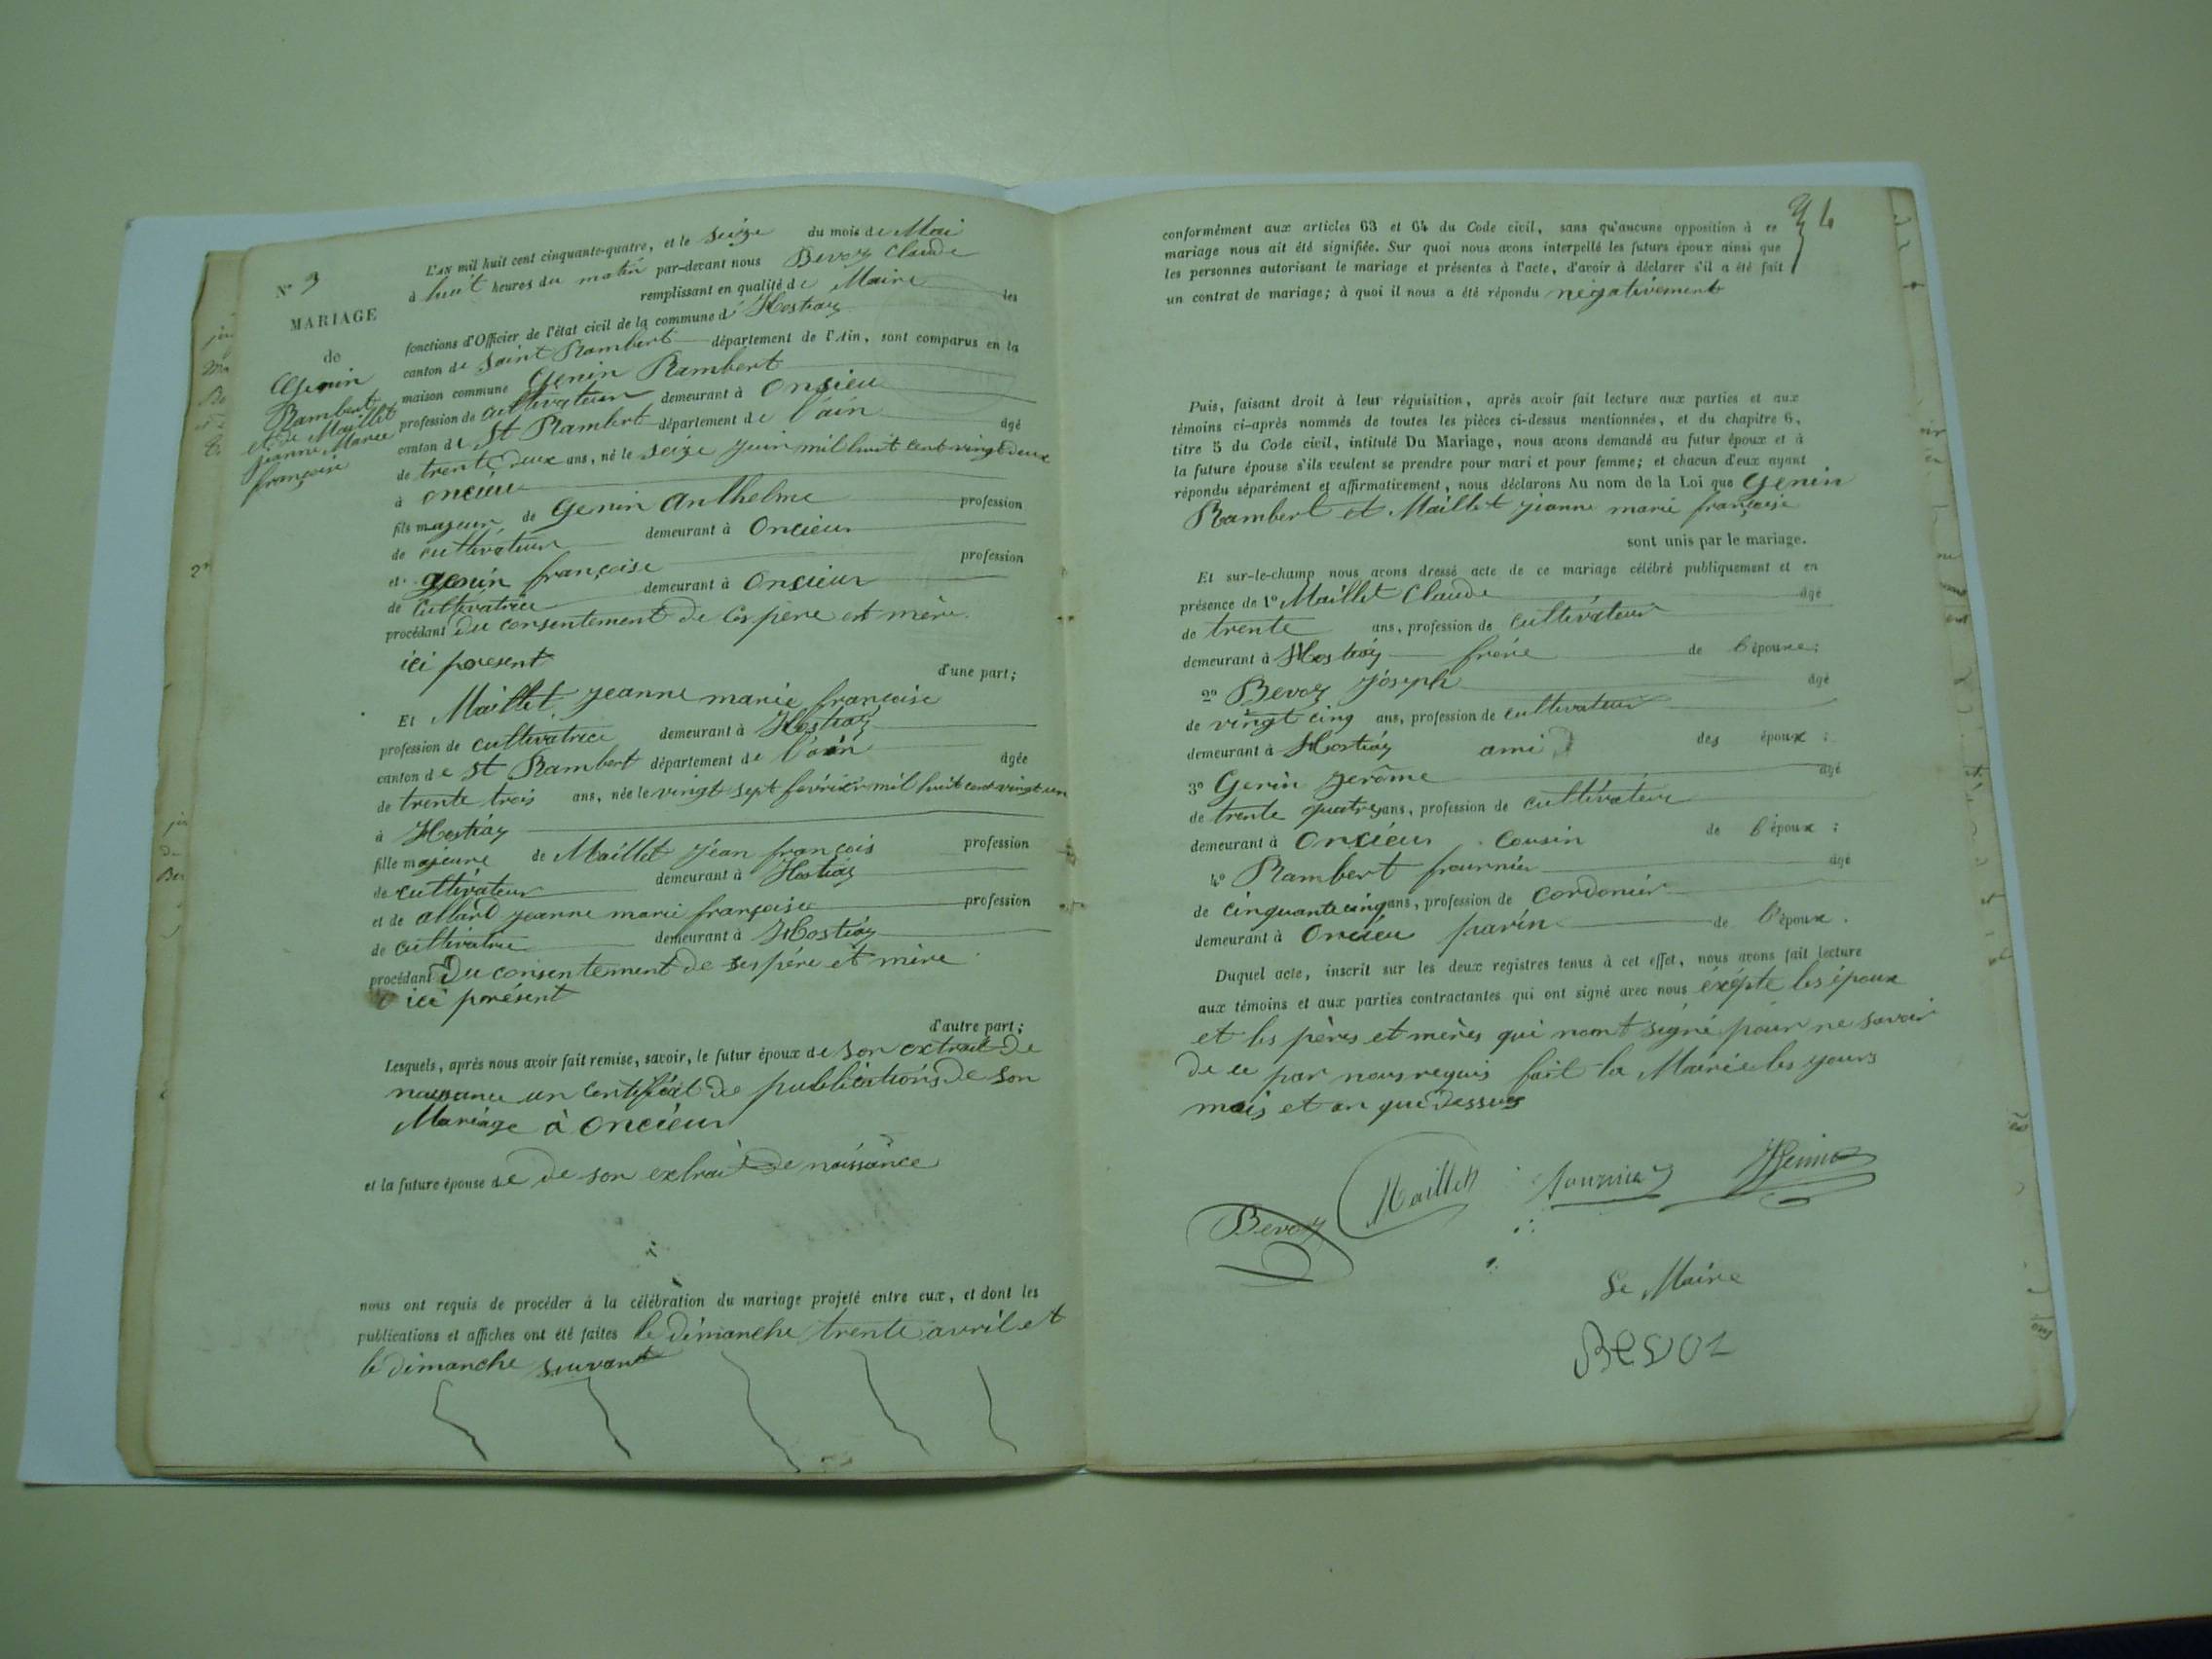 N° 3
MARIAGE
de
Genin
Rambert
et de Maillet
jeanne Marie
françoise
L'AN mil huit cent cinquante-quatre, et le Seize du mois de Mai
à huit heures du matin par-devant nous Bevoz Claude
remplissant en qualité de Maire les
fonctions d'Officier de l'état civil de la commune d' Hostiaz
canton de Saint Rambert département de l'Ain, sont comparus en la
maison commune Genin Rambert
profession de cultivateur demeurant à Onsieu
canton de St Rambert département de l'ain âgé
de trente deux ans, né le seize juin mil huit cent vingt deux
à oncieu
fils majeur de Genin Anthelme profession
de cultivateur demeurant à Oncieux
et genin françoise profession
de Cultivatrice demeurant à Oncieux
procédant du consentement de ces père et mère
ici present
d'une part;
Et Maillet jeanne marie françoise
profession de cultivatrice demeurant à Hostiaz
canton de St Rambert département de l'ain âgée
de trente trois ans, née le vingt sept février mil huit cent vingt un
à Hostiaz
fille majeure de Maillet jean françois profession
de cultivateur demeurant à Hostiaz
et de allard jeanne marie françoise profession
de cultivatrice demeurant à Hostiaz
procédant du consentement de ses père et mère
ici présent
d'autre part;
Lesquels, après nous avoir fait remise, savoir, le futur époux de son extrait de
naissance un certificat de publications de son
Mariage à Oncieux
et la future épouse de de son extrait de naissance
nous ont requis de procéder à la célébration du mariage projeté entre eux, et dont les
publications et affiches ont été faites le dimanche trente avril et
le dimanche suivant
conformément aux articles 63 et 64 du Code civil, sans qu'aucune opposition à ce
mariage nous ait été signifiée. Sur quoi nous avons interpellé les futurs époux ainsi que
les personnes autorisant le mariage et présentes à l'acte, d'avoir à déclarer s'il a été fait
un contrat de mariage; à quoi il nous a été répondu négativement
Puis, faisant droit à leur réquisition, après avoir fait lecture aux parties et aux
témoins ci-après nommés de toutes les pièces ci-dessus mentionnées, et du chapitre 6,
titre 5 du Code civil, intitulé Du Mariage, nous avons demandé au futur époux et à
la future épouse s'ils veulent se prendre pour mari et pour femme; et chacun d'eux ayant
répondu séparément et affirmativement, nous déclarons Au nom de la Loi que Genin
Rambert et Maillet jeanne marie françoise
sont unis par le mariage.
Et sur-le-champ nous avons dressé acte de ce mariage célébré publiquement et en
présence de 1° Maillet Claude âgé
de trente ans, profession de cultivateur
demeurant à Hostiaz frère de l'épouxe;
2° Bevoz joseph âgé
de vingt cinq ans, profession de cultivateur
demeurant à Hostiaz ami des époux;
3° Genin jerôme âgé
de trente quatre ans, profession de cultivateur
demeurant à Oncieux Cousin de l'époux;
4° Rambert fournier âgé
de cinquante cinq ans, profession de cordonier
demeurant à Oncieu parin de l'époux.
Duquel acte, inscrit sur les deux registres tenus à cet effet, nous avons fait lecture
aux témoins et aux parties contractantes qui ont signé avec nous éxépté les époux
et les pères et mères qui nont signé pour ne savoir
de ce par nous requis fait la Mairie les jours
mois et an que dessus
Bevoz Maillet fournier Genin
Le Maire
Bevoz